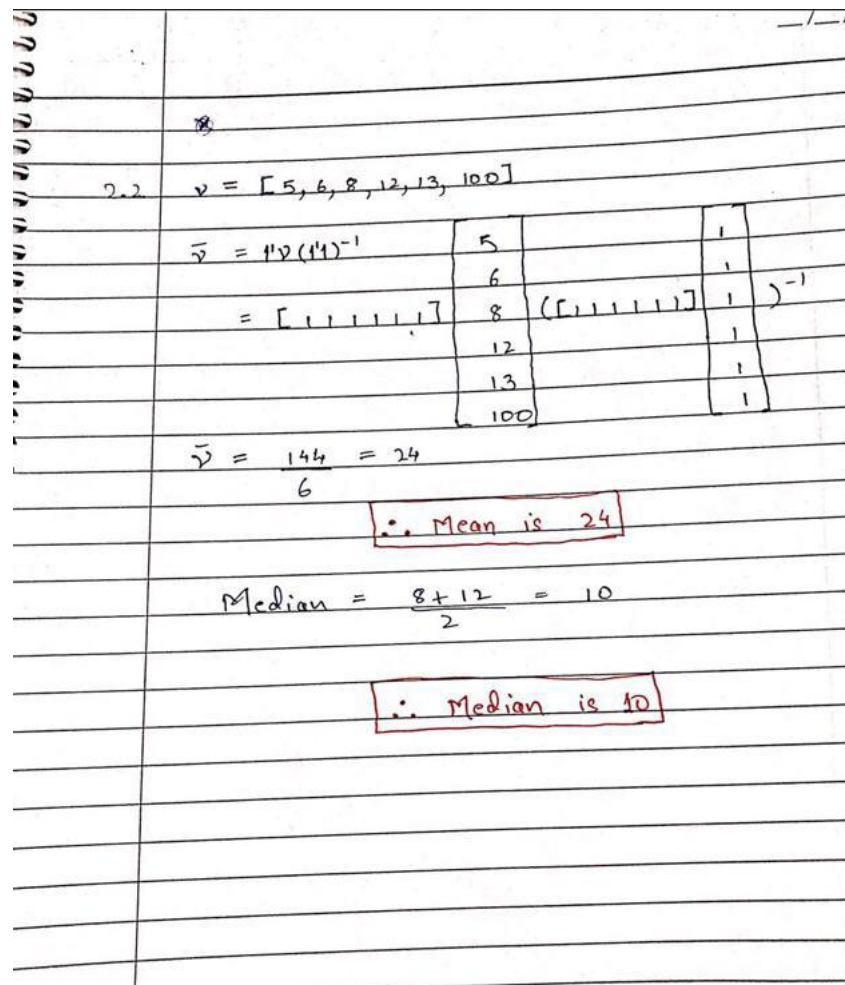 __/__/
2.2 ν = [5, 6, 8, 12, 13, 100]
ν̄ = 1'ν(1'1)⁻¹
= [1 1 1 1 1 1] [5 6 8 12 13 100] ([1 1 1 1 1 1] [1 1 1 1 1 1])⁻¹
ν̄ = 144/6 = 24
∴ Mean is 24
Median = 8+12/2 = 10
∴ Median is 10